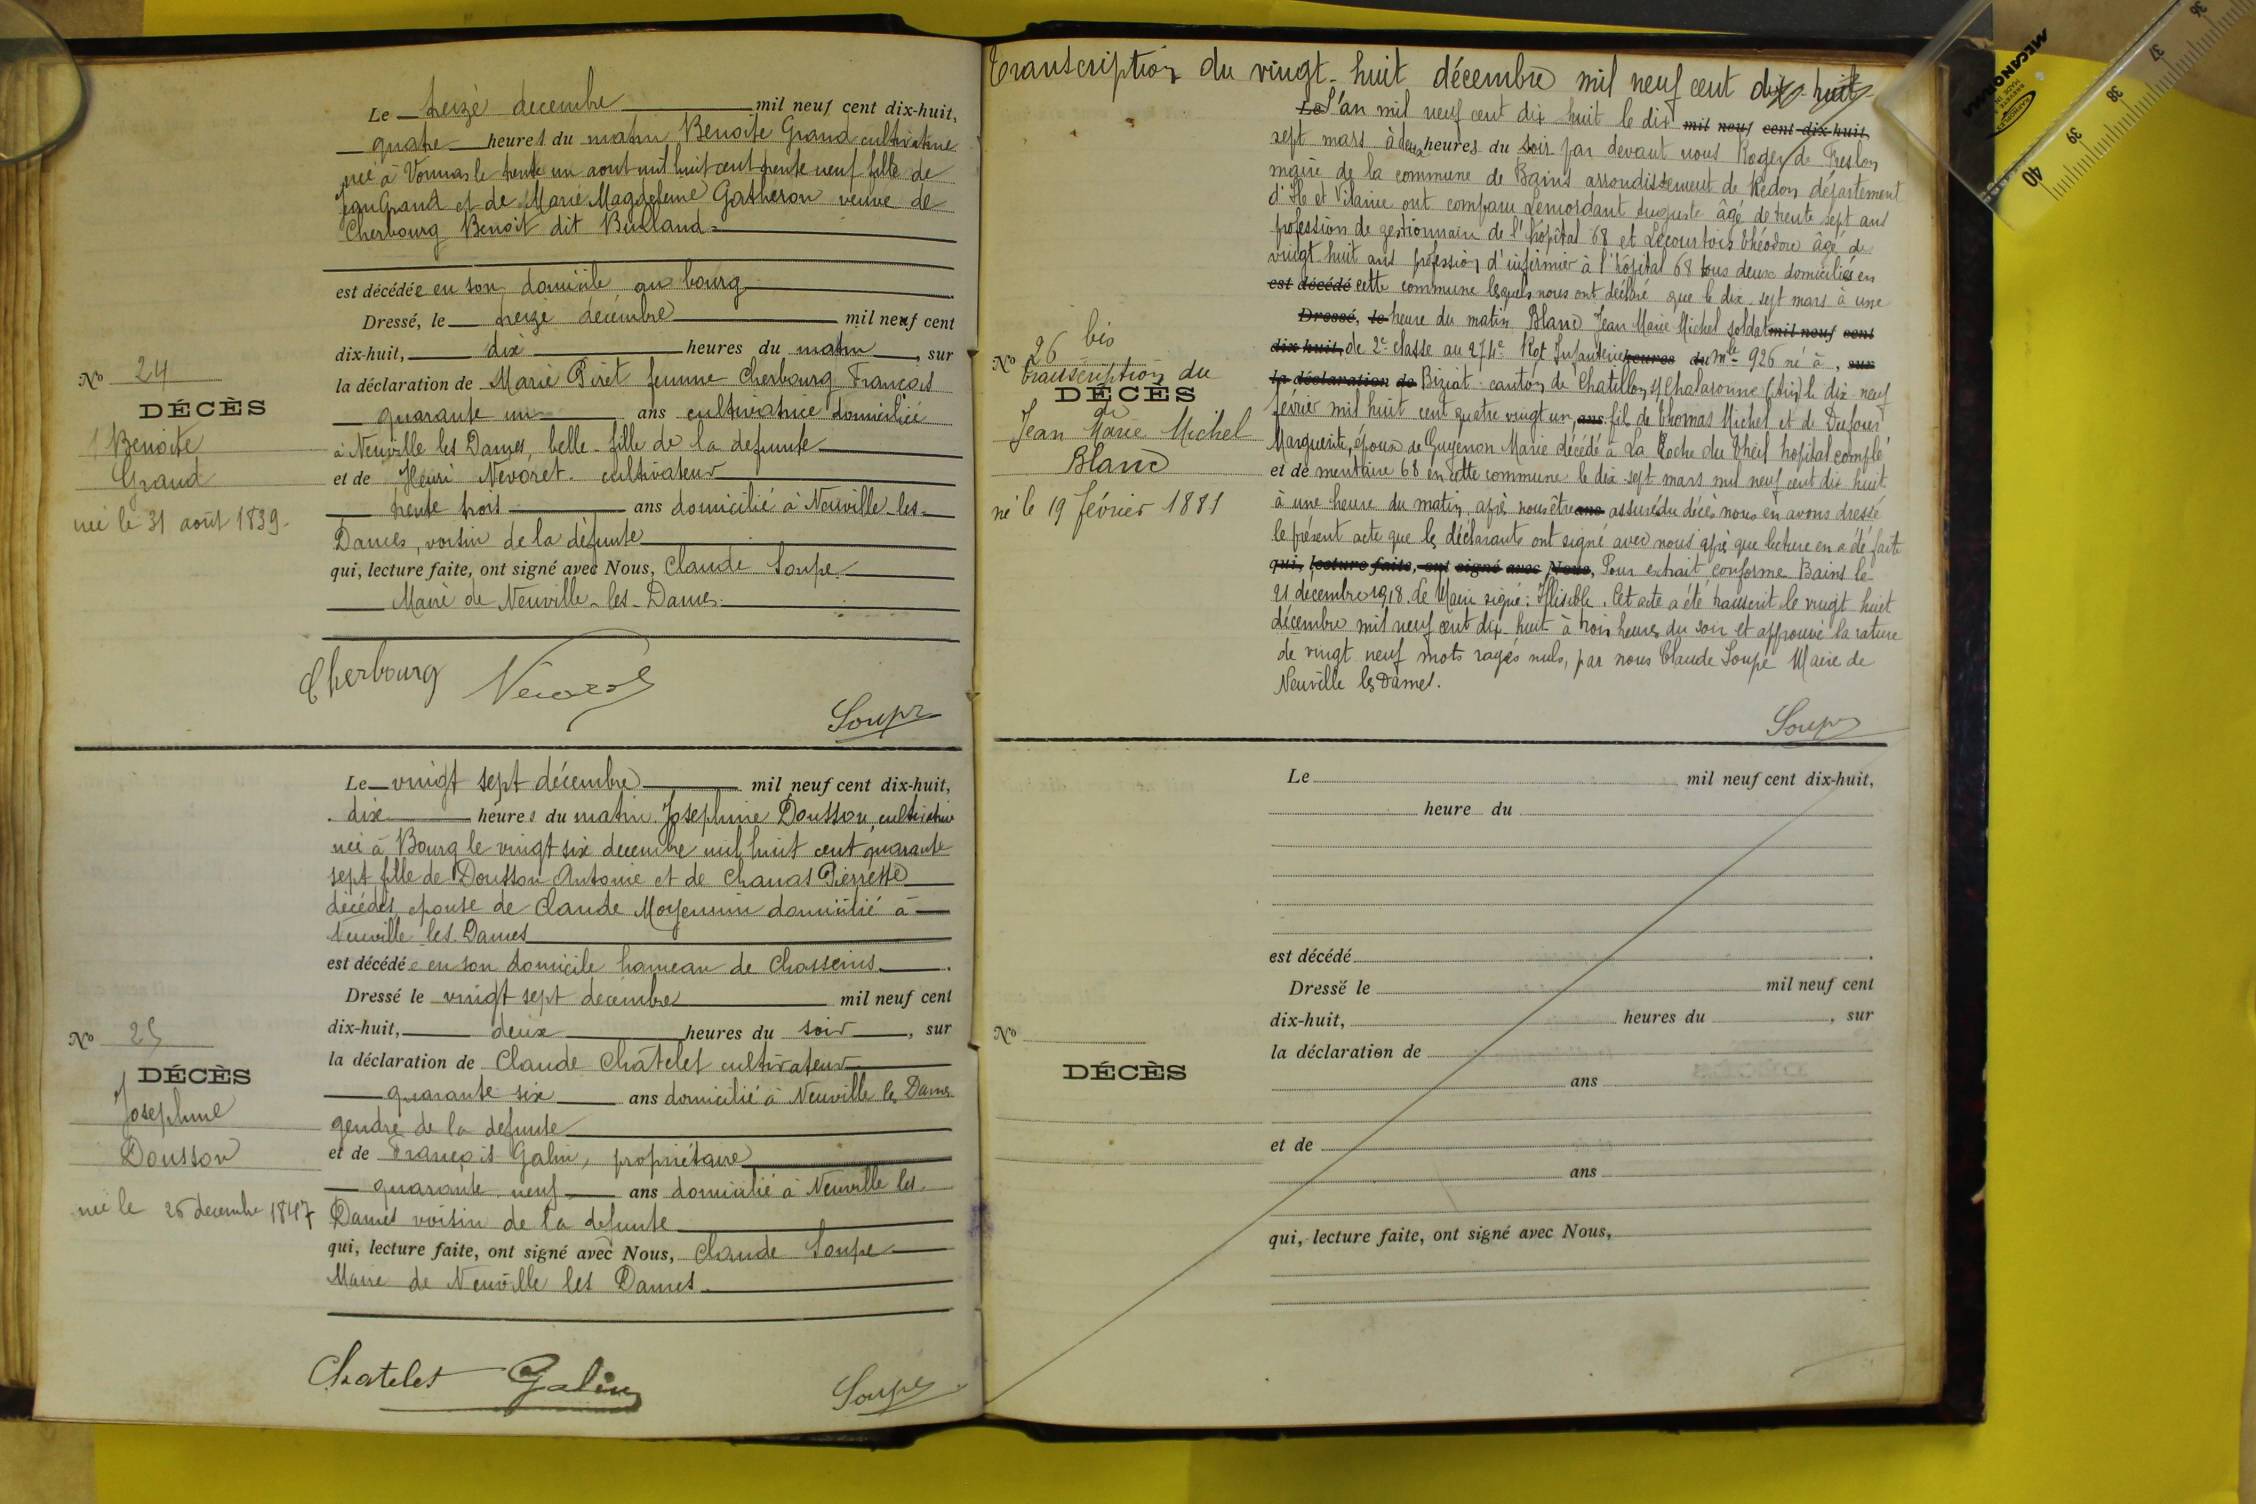 Le treize decembre mil neuf cent dix-huit,
quatre heures du matin Benoite Grand cultivatrice
née à Vonnas le trente un aout mil huit cent trente neuf fille de
Jean Grand et de Marie Magdeleine Gatheron veuve de
Cherbourg Benoit dit Bulland
est décédée en son domicile au bourg
Dressé, le treize décembre mil neuf cent
dix-huit, dix heures du matin, sur
la déclaration de Marie Piret femme Cherbourg François
quarante un ans cultivatrice domiciliée
à Neuville les Dames, belle-fille de la defunte
et de Henri Nevoret cultivateur
trente trois ans domicilié à Neuville-les-
Dames, voisin de la défunte
qui, lecture faite, ont signé avec Nous, Claude Soupe
Maire de Neuville-les-Dames.
Cherbourg Nevoret
Soupe
No 24
DÉCÈS
Benoite
Grand
née le 31 août 1839.
Le vingt sept décembre mil neuf cent dix-huit,
dix heures du matin Josephine Dousson, cultivatrice
née à Bourg le vingt six decembre mil huit cent quarante
sept fille de Dousson Antoine et de Chanas Pierrette
décédés, epouse de Claude Moyemnin domicilié à
Neuville les Dames
est décédée en son domicile hameau de Chasseins.
Dressé le vingt sept decembre mil neuf cent
dix-huit, deux heures du soir, sur
la déclaration de Claude Châtelet cultivateur
quarante six ans domicilié à Neuville les Dames
gendre de la defunte
et de François Galin, propriétaire
quarante neuf ans domicilié à Neuville les
Dames voisin de la defunte
qui, lecture faite, ont signé avec Nous, Claude Soupe
Maire de Neuville les Dames
Chatelet Galin
Soupe
No 25
DÉCÈS
Josephine
Dousson
née le 26 decembre 1847
Transcription du vingt-huit décembre mil neuf cent dix-huit
Le L'an mil neuf cent dix huit le dix mil neuf cent dix-huit,
sept mars à deux heures du soir par devant nous Roger de Freslon
maire de la commune de Bains arrondissement de Redon département
d'Ile et Vilaine ont comparu Lemordant Auguste âgé de trente sept ans
profession de gestionnaire de l'hôpital 68 et Lecourtois Théodore âgé de
vingt-huit ans profession d'infirmier à l'hôpital 68 tous deux domiciliés en
est décédé cette commune lesquels nous ont déclaré que le dix-sept mars à une
Dressé, le heure du matin Blanc Jean Marie Michel soldat mil neuf cent
dix huit, de 2e classe au 274e Rgt Infanterie heures du mle 926 né à, sur
la déclaration de Biziat canton de Chatillon s/ Chalaronne (Ain) le dix-neuf
février mil huit cent quatre vingt un, ans fils de Thomas Michel et de Dufour
Marguerite, époux de Guyenon Marie décédé à La Roche du Theil hopital complé
et de mentaire 68 en cette commune le dix-sept mars mil neuf cent dix huit
à une heure du matin, après nous être ans assuré du décès nous en avons dressé
le présent acte que les déclarants ont signé avec nous après que lecture en a été faite
qui, lecture faite, ont signé avec Nous, Pour extrait conforme Bains le
21 décembre 1918. Le Maire signé: Illisible. Cet acte a été transcrit le vingt huit
décembre mil neuf cent dix-huit à trois heures du soir et approuvé la rature
de vingt neuf mots rayés nuls, par nous Claude Soupe Maire de
Neuville les Dames.
Soupe
No 26 bis
transcription du
DÉCÈS
de
Jean Marie Michel
Blanc
né le 19 février 1881
Le mil neuf cent dix-huit,
heure du
est décédé
Dressé le mil neuf cent
dix-huit, heures du, sur
la déclaration de
ans
et de
ans
qui, lecture faite, ont signé avec Nous,
No
DÉCÈS
MECANORMA
36
37
38
39
40